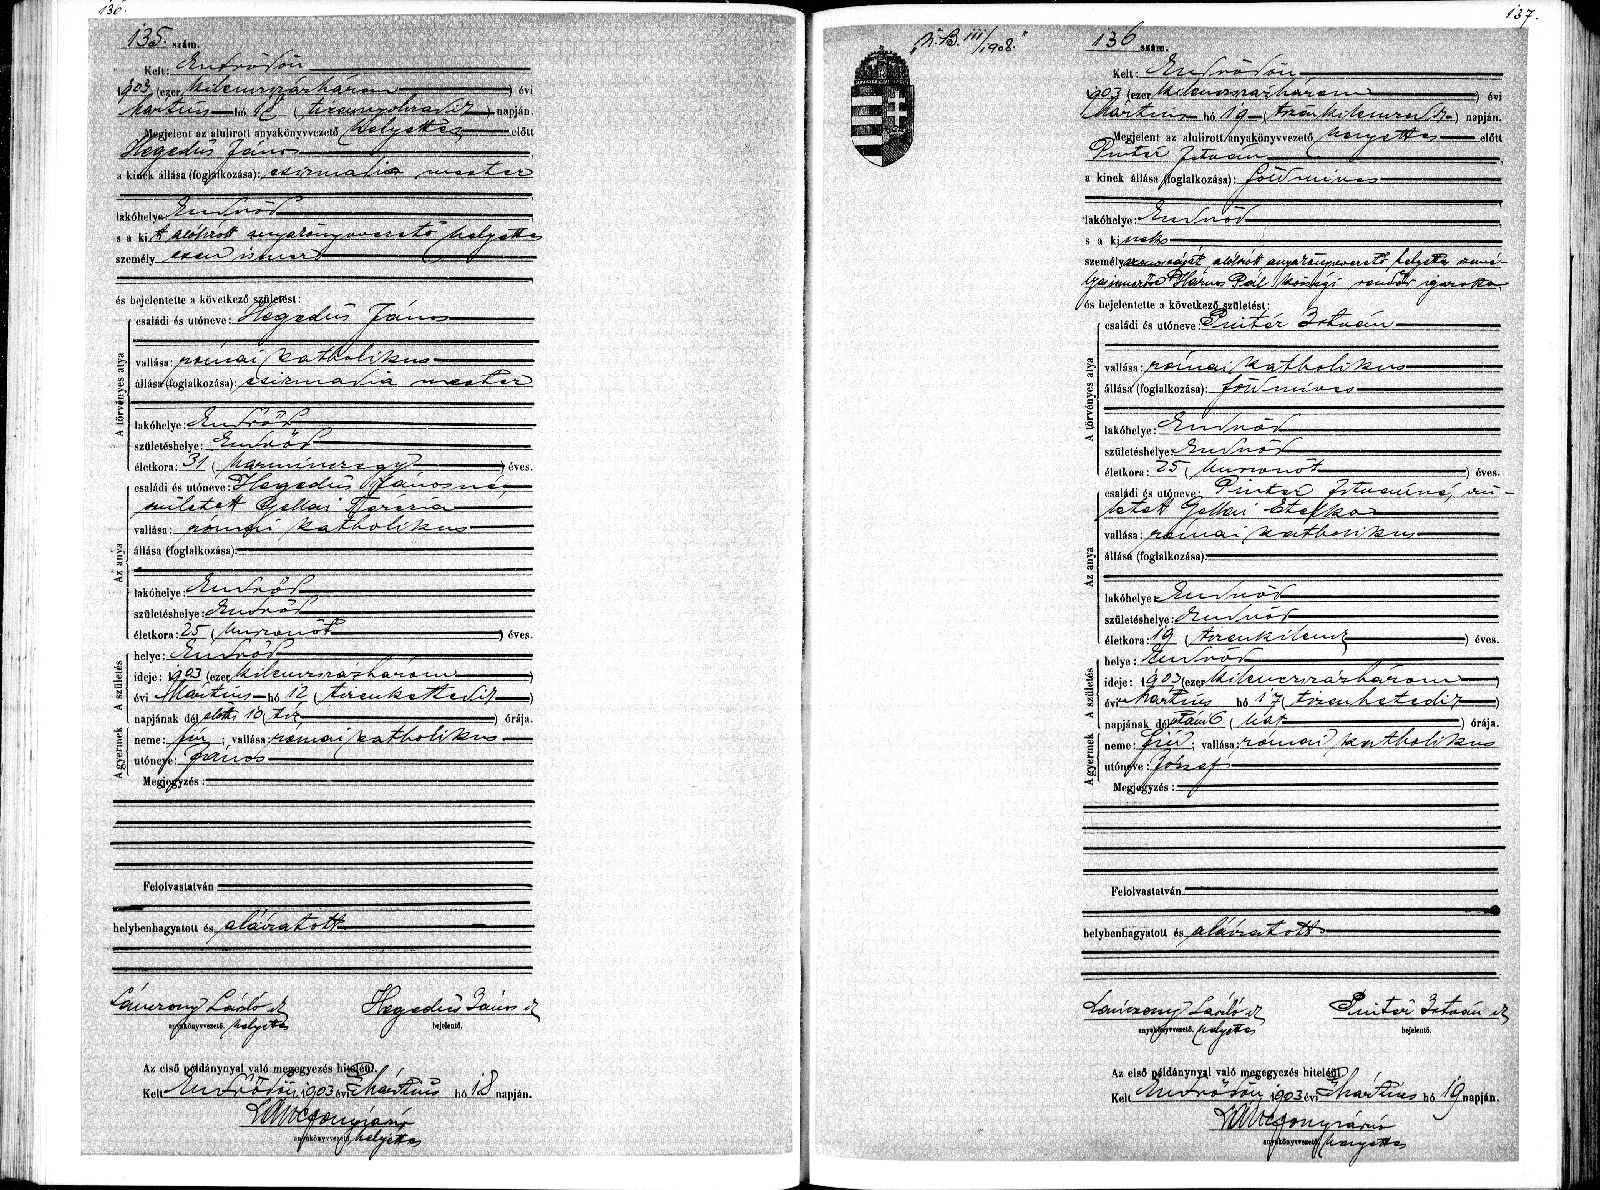 136.
135. szám.
Kelt: Endrődön
1903 (ezer kilenczszázhárom ) évi
Mártius hó 18 ( tizennyolczadik ) napján.
Megjelent az alulirott anyakönyvvezető helyettes előtt
Hegedüs János
a kinek állása (foglalkozása): csizmadia mester
lakóhelye: Endrőd
s a kit alólirott anyakönyvvezető helyettes
személyesen ismer
és bejelentette a következő születést:
A törvényes atya
családi és utóneve: Hegedüs János
vallása: római katholikus
állása (foglalkozása): csizmadia mester
lakóhelye: Endrőd
születéshelye: Endrőd
életkora: 31 ( harminczegy ) éves.
Az anya
családi és utóneve: Hegedüs Jánosné,
született Gellai Terézia
vallása: római katholikus
állása (foglalkozása):
lakóhelye: Endrőd
születéshelye: Endrőd
életkora: 25 ( huszonöt ) éves.
A születés
helye: Endrőd
ideje: 1903 (ezer kilenczszázhárom )
évi Mártius hó 12 ( tizenkettedik )
napjának dél előtti 10 ( tíz ) órája.
A gyermek
neme: fiú ; vallása: római katholikus
utóneve: János
Megjegyzés:
Felolvastatván
helybenhagyatott és aláiratott
Lánczony László
anyakönyvvezető. helyettes
Hegedüs János
bejelentő.
Az első példánynyal való megegyezés hiteléül.
Kelt Endrődön 1903 évi Mártius hó 18 napján.
anyakönyvvezető. helyettes
137.
"N. B. III/1908."
136 szám.
Kelt: Endrődön
1903 (ezer kilenczszázhárom ) évi
Mártius hó 19 ( tizenkilenczedik ) napján.
Megjelent az alulirott anyakönyvvezető helyettes előtt
Pintér István
a kinek állása (foglalkozása): földmives
lakóhelye: Endrőd
s a kinek
személyazonosságát alólirott anyakönyvvezető helyettes szemé-
lyes ismerőse Hármos Pál községi rendőr igazolta
és bejelentette a következő születést:
A törvényes atya
családi és utóneve: Pintér István
vallása: római katholikus
állása (foglalkozása): földmives
lakóhelye: Endrőd
születéshelye: Endrőd
életkora: 25 ( huszonöt ) éves.
Az anya
családi és utóneve: Pintér Istvánné, szü-
letett Gellai Etelka
vallása: római katholikus
állása (foglalkozása):
lakóhelye: Endrőd
születéshelye: Endrőd
életkora: 19 ( tizenkilencz ) éves.
A születés
helye: Endrőd
ideje: 1903 (ezer kilenczszázhárom )
évi Mártius hó 17 ( tizenhetedik )
napjának dél utáni 6 ( hat ) órája.
A gyermek
neme: fiú ; vallása: római katholikus
utóneve: József
Megjegyzés:
Felolvastatván
helybenhagyatott és aláiratott
Lánczony László
anyakönyvvezető. helyettes
Pintér István
bejelentő.
Az első példánynyal való megegyezés hiteléül
Kelt Endrődön 1903 évi Mártius hó 19 napján.
anyakönyvvezető. helyettes